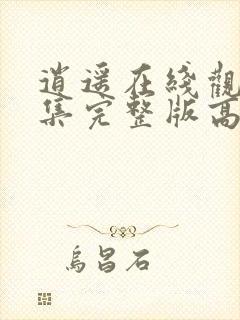 逍遥在綫觀
集完整版高
烏昌石